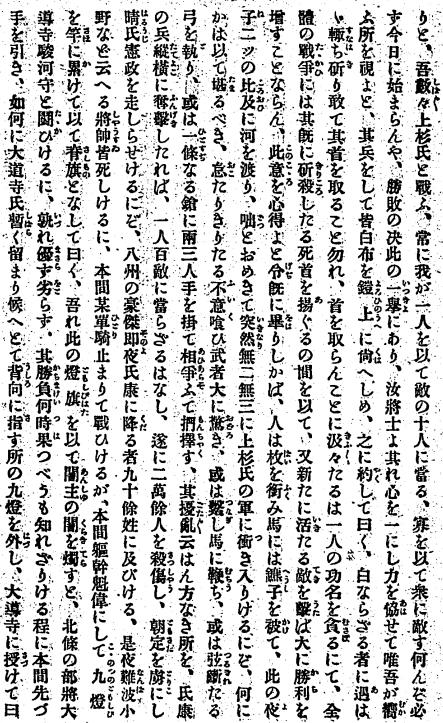 りと、吾數々上杉氏と戰ふ、常に我が一人を以て敵の十人に當る、寡を以て衆に敵す何んぞ必
ず今日に始まらんや、勝敗の决此の一擧にあり、汝將士よ其れ心を一にし力を協せて唯吾が嚮
ふ所を視よと、其兵をして皆白布を鎧の上に尙へしめ、之に約して曰く、白ならざる者に遇は
ゞ輙ち斫り敢て其首を取ること勿れ、首を取らんことに汲々たるは一人の功名を貪るにて、全
體の戰爭には其旣に斫殺したる死首を揚ぐるの間を以て、又新たに活たる敵を擊ば大に勝利を
增すことならん、此意を心得よと令旣に畢りしかば、人は枚を銜み馬には鑣子を被て、此の夜
子二ッの比及に河を渡り、咄とおめきて突然無二無三に上杉氏の軍に衝き入りけるにぞ、何に
かは以て堪るべき、怠たりきりたる不意喰ひ武者大に驚き、或は繫し馬に鞭ち、或は弦斷たる
弓を執り、或は一條なる鎗に兩三人手を掛て相爭ふて捫擇す、其擾亂云はん方なき所を、氏康
の兵縱橫に奪擊したれば、一人百敵に當らざるはなし、遂に二萬餘人を殺傷し、朝定を虜にし
晴氏憲政を走らせけるにぞ、八州の豪傑卽夜氏康に降る者九十餘姓に及びける、是夜難波小
野など云へる將帥皆死しけるに、本間某單騎止まりて戰ひけるが、本間軀幹魁偉にして、九燈
を竿に累けて以て脊旗となして曰く、吾れ此の燈旗を以て闇主の闇を燭すと、北條の部將大
導寺駿河守と鬪ひけるに、孰れ優す劣らす、其勝負何時果つべうも知れざりける程に本間先づ
手を引き、如何に大道寺氏暫く留まり候へとて背向に指す所の九燈を外し、大導寺に授けて曰